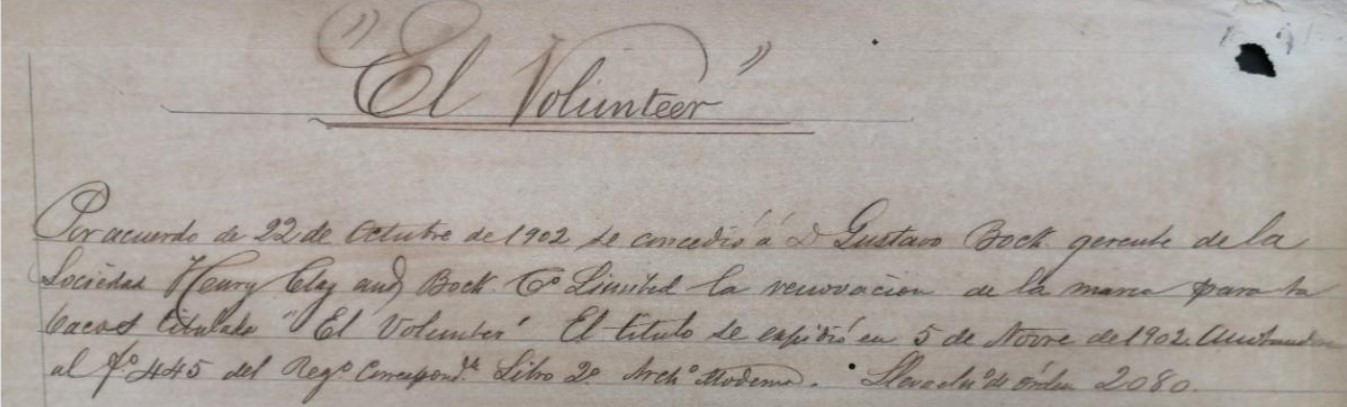 "El Volunteer"
Por acuerdo de 22 de Octubre de 1902 se concedió á D Gustavo Bock gerente de la
Sociedad Henry Clay and Bock Cº Limited la renovacion de la marca para ta
bacos titulada "El Volunteer" El título se expidió en 5 de Novre de 1902. Anotandose
al fº 445 del Regº Correspond.te Libro 2º Archº Moderno. Lleva el nº de órden 2080.